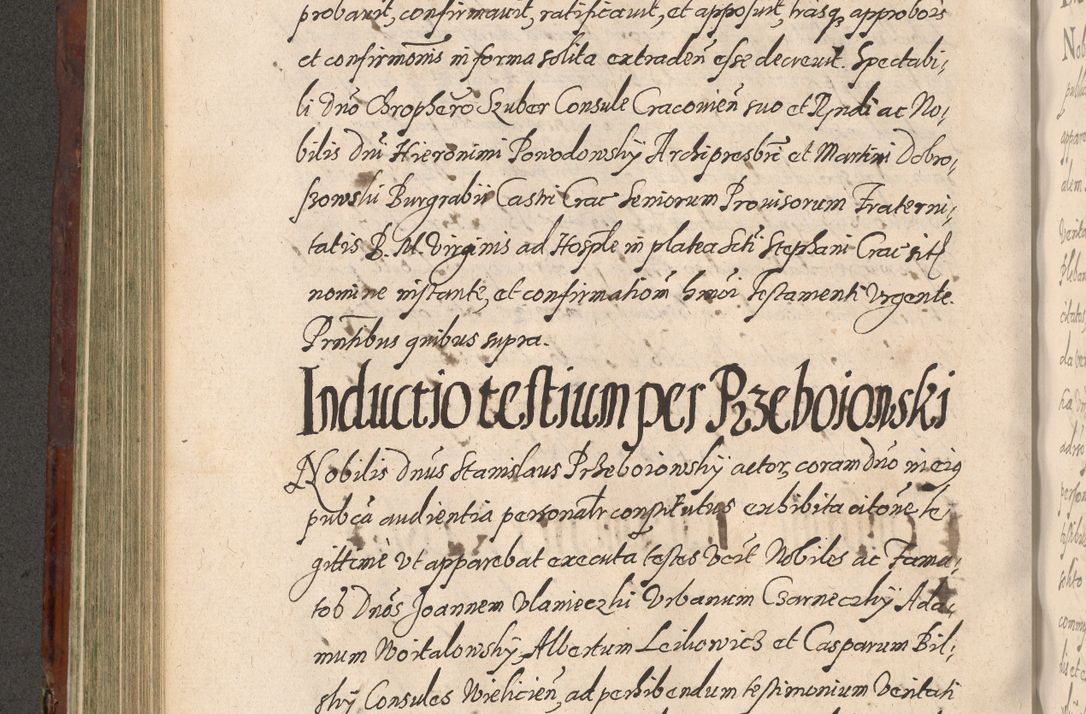 probavit, confirmavit, ratificavit, et apposuit, hasq3 approbo͠is
et confirmo͠nis in forma solita extraden̄ esse decrevit. Spectabi-
li Dn̄o Chrophero Szuber Consule Cracovien̄ suo et Rn̄di ac No-
bilis Dn̄i Hieronimi Powodowskÿ Archipresbrī et Martini Dobro-
szowski Burgrabii Castri Crac Seniorum Provisorum Fraterni-
tatis B. M. Virginis ad Hosple in platea Scti Stephani Crac sit
nomine instante, et confirmationē hmoi Testamenti Vrgente.
Prn̄tibus quibus supra.
Inductio testium per Przeboiowski
Nobilis Dnūs Stanislaus Przeboiowskÿ actor, coram Dn̄o in eiq
pub̄ca audientia personalr constitutus exhibita cito͠ne le-
gittime Vt apparebat executa testes Vert Nobiles ac Fama-
tos Dn̄os Joannem Vlanieczki Vrbanum Czarneczkÿ Ada-
mum Woitalowskÿ, Albertum Leikowicz et Casparum Bil-
skÿ Consules Wielicien̄, ad perhibendum testimonium Veritati